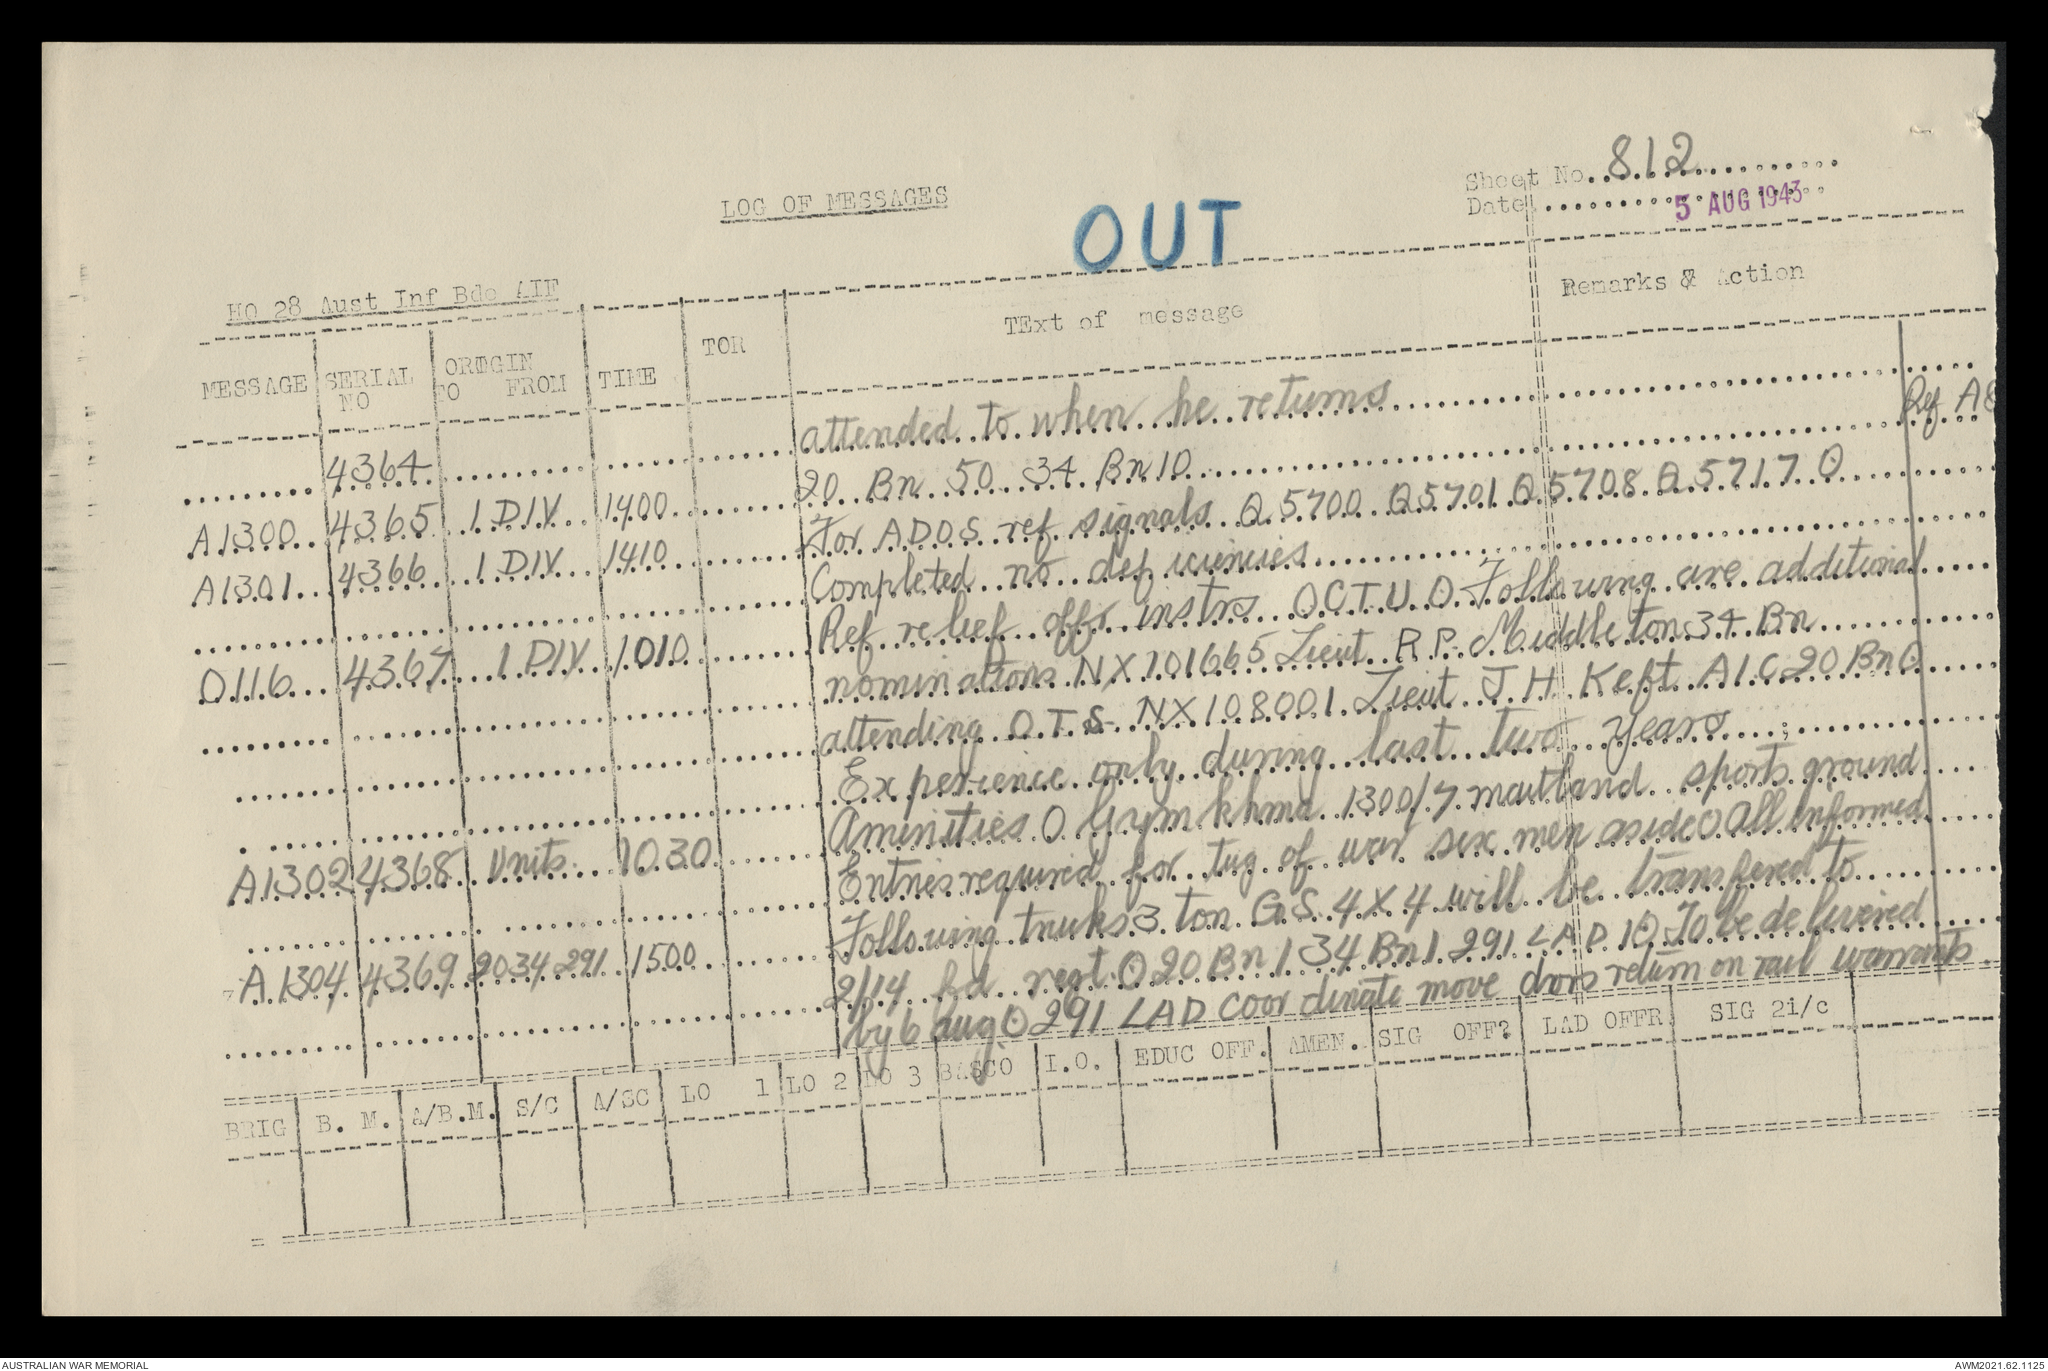 Sheet No. 812
Date 5 AUG 1943
LOG OF MESSAGES
OUT
HQ 28 Aust Inf Bde AIF
MESSAGE SERIAL NO ORIGIN TO FROM TIME TOR TExt of message Remarks & Action
4364 attended to when he returns
A1300 4365 1 DIV 1400 20 Bn 50 34 Bn 10 Ref A8
A1301 4366 1 DIV 1410 For ADOS ref signals Q5700 Q5701 Q5708 Q5717 O
Completed no deficiencies
O116 4367 1 DIV 1010 Ref relief offr instrs OCTU O Following are additional
nominations NX101665 Lieut R.P. Middleton 34 Bn
attending O.T.S. NX108001 Lieut J.H. Keft A1C 20 Bn O
Experience only during last two years
A1302 4368 Units 1030 Amenities O Gymkhma 1300/7 maitland sports ground
Entries required for tug of war six men aside O All informed
A1304 4369 20 34 291 1500 Following trucks 3 ton G.S. 4X4 will be transfered to
2/14 fd regt O 20 Bn 1 34 Bn 1 291 LAD 1 O To be delivered
by 6 aug O 291 LAD coordinate move dvrs return on rail warrants.
BRIG B. M. A/B.M. S/C A/SC LO 1 LO 2 LO 3 BASCO I.O. EDUC OFF. AMEN. SIG OFF? LAD OFFR SIG 2i/c
AUSTRALIAN WAR MEMORIAL
AWM2021.62.1125